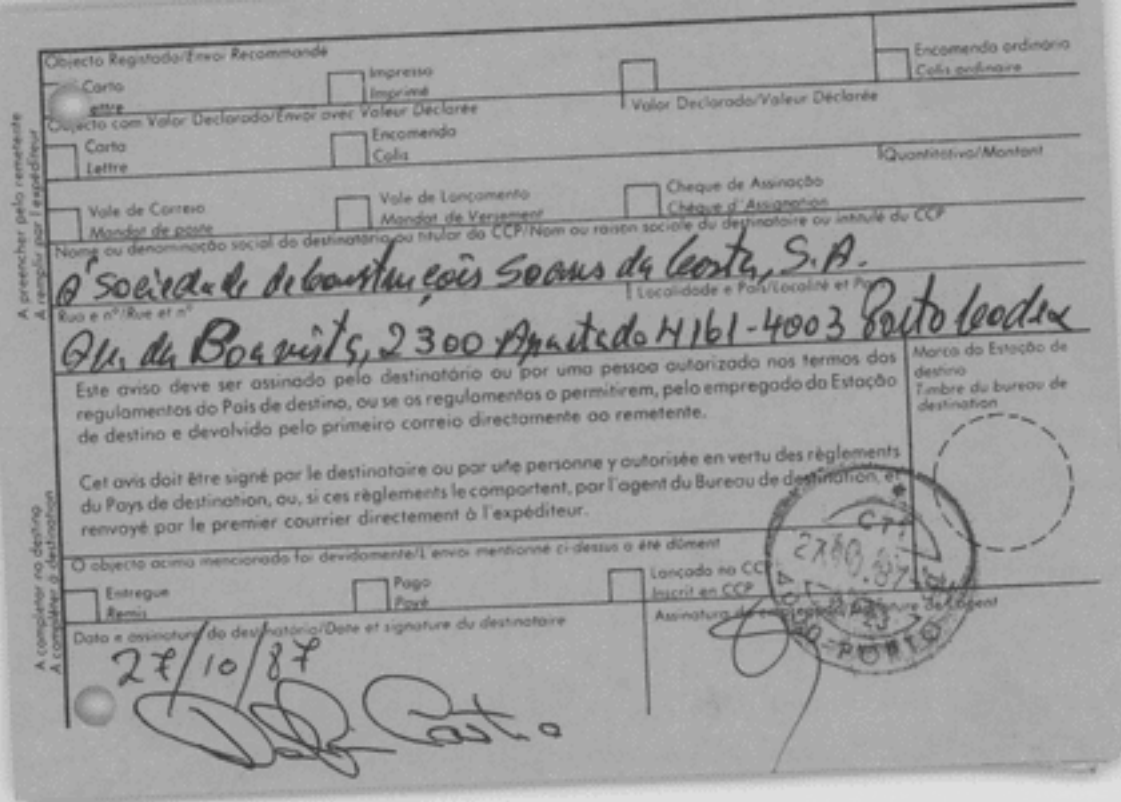 Objecto Registado/Envoi Recommandé
Carta
Lettre
Impresso
Imprimé
Encomenda ordinária
Colis ordinaire
Objecto com Valor Declarado/Envoi avec Valeur Déclarée
Valor Declarado/Valeur Déclarée
Carta
Lettre
Encomenda
Colis
Quantitativo/Montant
Vale de Correio
Mandat de poste
Vale de Lançamento
Mandat de Versement
Cheque de Assinação
Chèque d'Assignation
A preencher pelo remetente
A remplir par l'expéditeur
Nome ou denominação social do destinatário ou titular da CCP/Nom ou raison sociale du destinataire ou intitulé du CCP
Sociedade de Construções Soares da Costa, S.A.
Rua e nº/Rue et nº
Localidade e País/Localité et
Av. da Boavista, 2300 Apartado 4161-4003 Porto Codex
Este aviso deve ser assinado pelo destinatário ou por uma pessoa autorizada nos termos dos
regulamentos do País de destino, ou se os regulamentos o permitirem, pelo empregado da Estação
de destino e devolvido pelo primeiro correio directamente ao remetente.
Marca da Estação de
destino
Timbre du bureau de
destination
Cet avis doit être signé par le destinataire ou par une personne y autorisée en vertu des règlements
du Pays de destination, ou, si ces règlements le comportent, par l'agent du Bureau de destination, et
renvoyé par le premier courrier directement à l'expéditeur.
A completar no destino
A compléter à destination
O objecto acima mencionado foi devidamente/L'envoi mentionné ci-dessus a été dûment
Entregue
Remis
Pago
Payé
Lançado na CCP
Inscrit en CCP
Data e assinatura do destinatário/Date et signature du destinataire
Assinatura do
27/10/87
Castro
PORTO